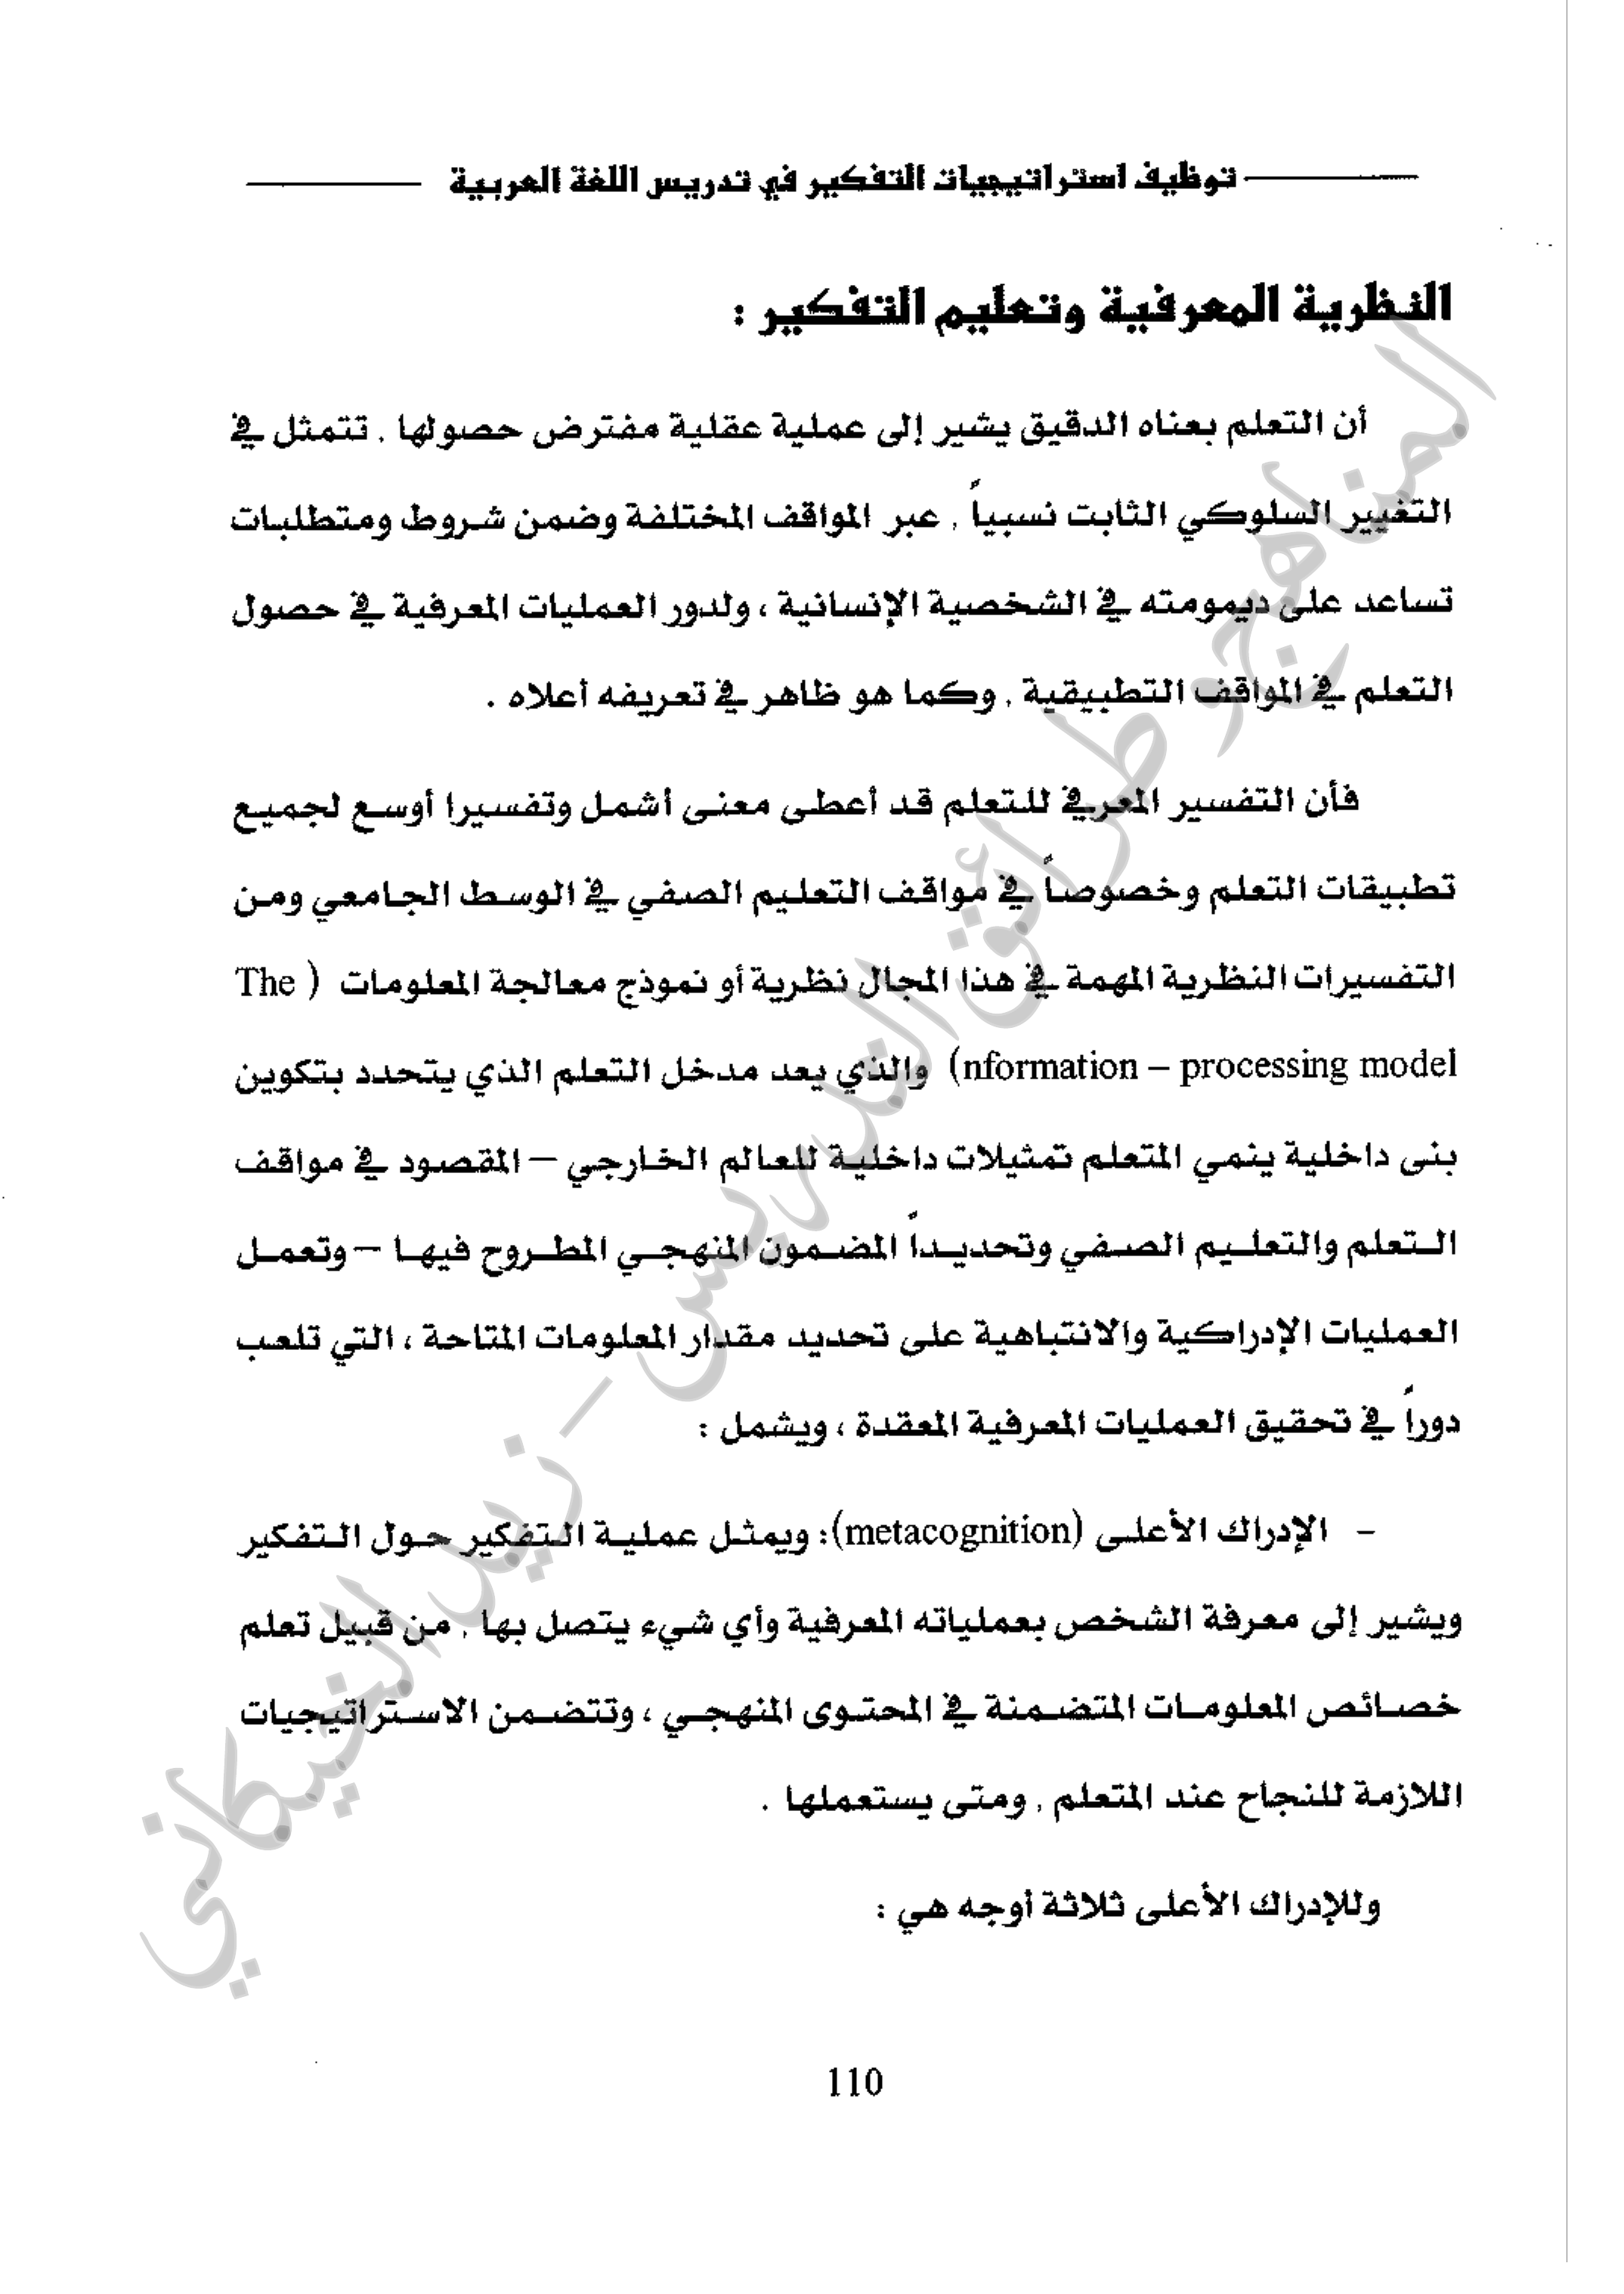 توظيف استراتيجيات التفكير في تدريس اللغة العربية
النظرية المعرفية وتعليم التفكير :
أن التعلم بعناه الدقيق يشير إلى عملية عقلية مفترض حصولها . تتمثل في
التغيير السلوكي الثابت نسبياً . عبر المواقف المختلفة وضمن شروط ومتطلبات
تساعد على ديمومته في الشخصية الإنسانية ، ولدور العمليات المعرفية في حصول
التعلم في المواقف التطبيقية . وكما هو ظاهر في تعريفه أعلاه .
فأن التفسير المعرفي للتعلم قد أعطى معنى أشمل وتفسيرا أوسع لجميع
تطبيقات التعلم وخصوصاً في مواقف التعليم الصفي في الوسط الجامعي ومن
التفسيرات النظرية المهمة في هذا المجال نظرية أو نموذج معالجة المعلومات ( The
nformation – processing model) والذي يعد مدخل التعلم الذي يتحدد بتكوين
بنى داخلية ينمي المتعلم تمثيلات داخلية للعالم الخارجي – المقصود في مواقف
التعلم والتعليم الصفي وتحديداً المضمون المنهجي المطروح فيها – وتعمل
العمليات الإدراكية والانتباهية على تحديد مقدار المعلومات المتاحة ، التي تلعب
دوراً في تحقيق العمليات المعرفية المعقدة ، ويشمل :
- الإدراك الأعلى (metacognition): ويمثل عملية التفكير حول التفكير
ويشير إلى معرفة الشخص بعملياته المعرفية وأي شيء يتصل بها . من قبيل تعلم
خصائص المعلومات المتضمنة في المحتوى المنهجي ، وتتضمن الاستراتيجيات
اللازمة للنجاح عند المتعلم . ومتى يستعملها .
وللإدراك الأعلى ثلاثة أوجه هي :
110
المناهج وطرائق التدريس – زيد الخيكاني